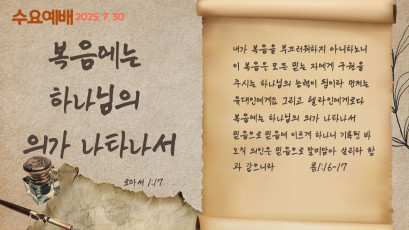 수요예배 2025. 7. 30
복음에는
하나님의
의가 나타나서
로마서 1:17
내가 복음을 부끄러워하지 아니하노니
이 복음은 모든 믿는 자에게 구원을
주시는 하나님의 능력이 됨이라 먼저는
유대인에게요 그리고 헬라인에게로다
복음에는 하나님의 의가 나타나서
믿음으로 믿음에 이르게 하나니 기록된 바
오직 의인은 믿음으로 말미암아 살리라 함
과 같으니라 롬1:16-17